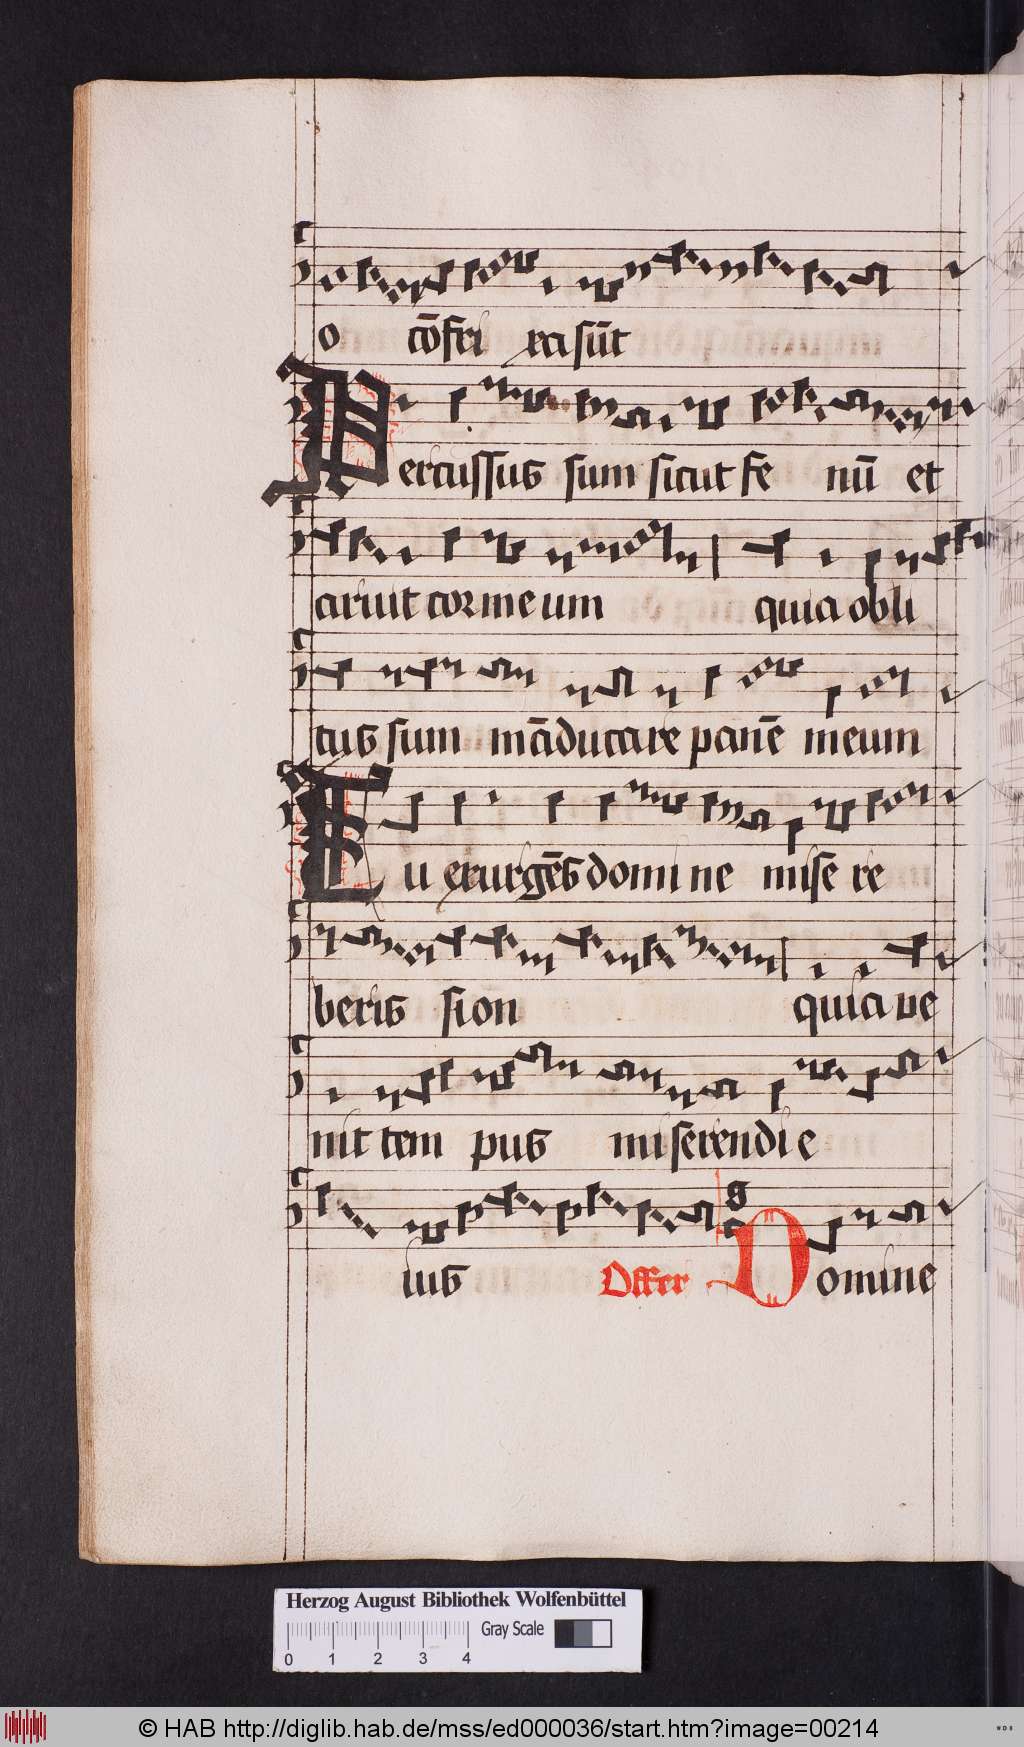 o cōfri xa sūt
Percussus sum sicut fe nū et
aruit cor me um quia obli
tus sum māducare panē meum
Tu exurgēs domi ne mise re
beris sion quia ve
nit tem pus miserendi e
ius Offer Domine
Herzog August Bibliothek Wolfenbüttel
Gray Scale
0 1 2 3 4
© HAB http://diglib.hab.de/mss/ed000036/start.htm?image=00214